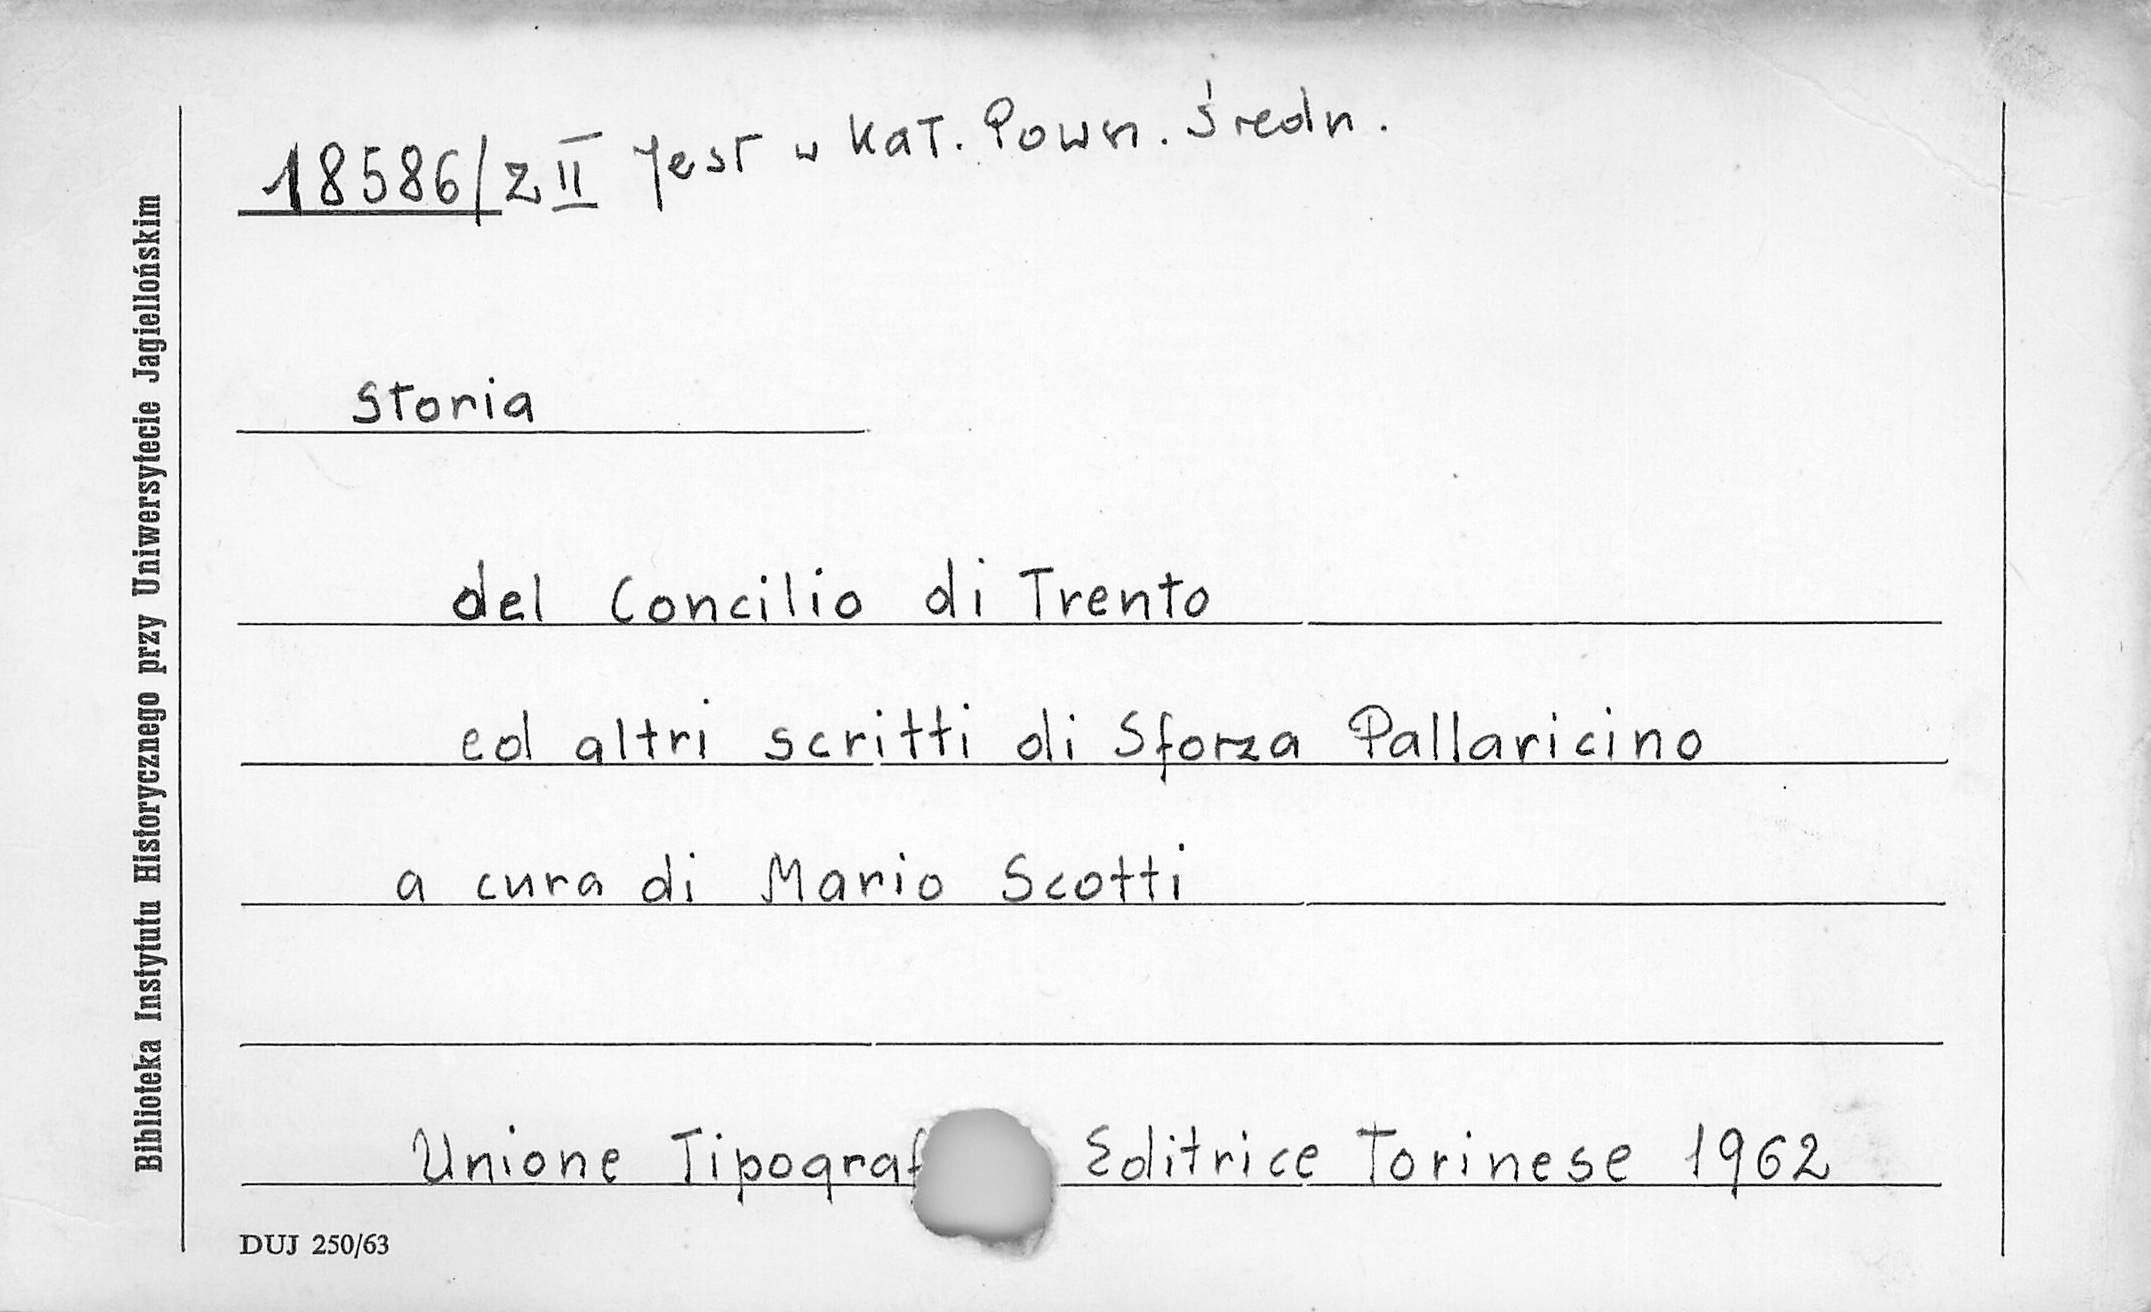 18586/z II Jest w Kat. Pown. Średn.
Storia
del Concilio di Trento
ed altri scritti di Sforza Pallaricino
a cura di Mario Scotti
Unione Tipograf Editrice Torinese 1962
DUJ 250/63
Biblioteka Instytutu Historycznego przy Uniwersytecie Jagiellońskim